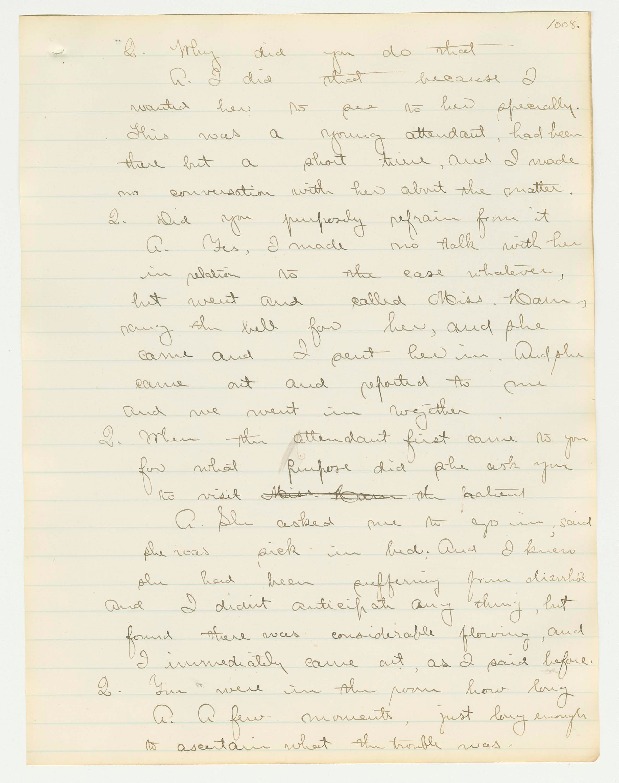 1008.
"Q. Why did you do that
A. I did that because I
wanted her to see to her specially.
This was a young attendant, had been
there but a short time, and I made
no conversation with her about the matter.
Q. Did you purposely refrain from it
A. Yes, I made no talk with her
in relation to the case whatever,
but went and called Miss.
rang the bell for her, and she
came and I sent her in. And she
came out and reported to me
and we went in together.
Q. When the attendant first came to you
for what purpose did she ask you
to visit Miss. the patient
A. She asked me to go in, said
she was sick in bed. And I knew
she had been suffering from
And I didn't anticipate any thing, but
found there was considerable flowing, and
I immediately came out, as I said before.
Q. You were in the room how long
A. A few moments, just long enough
to ascertain what the trouble was.